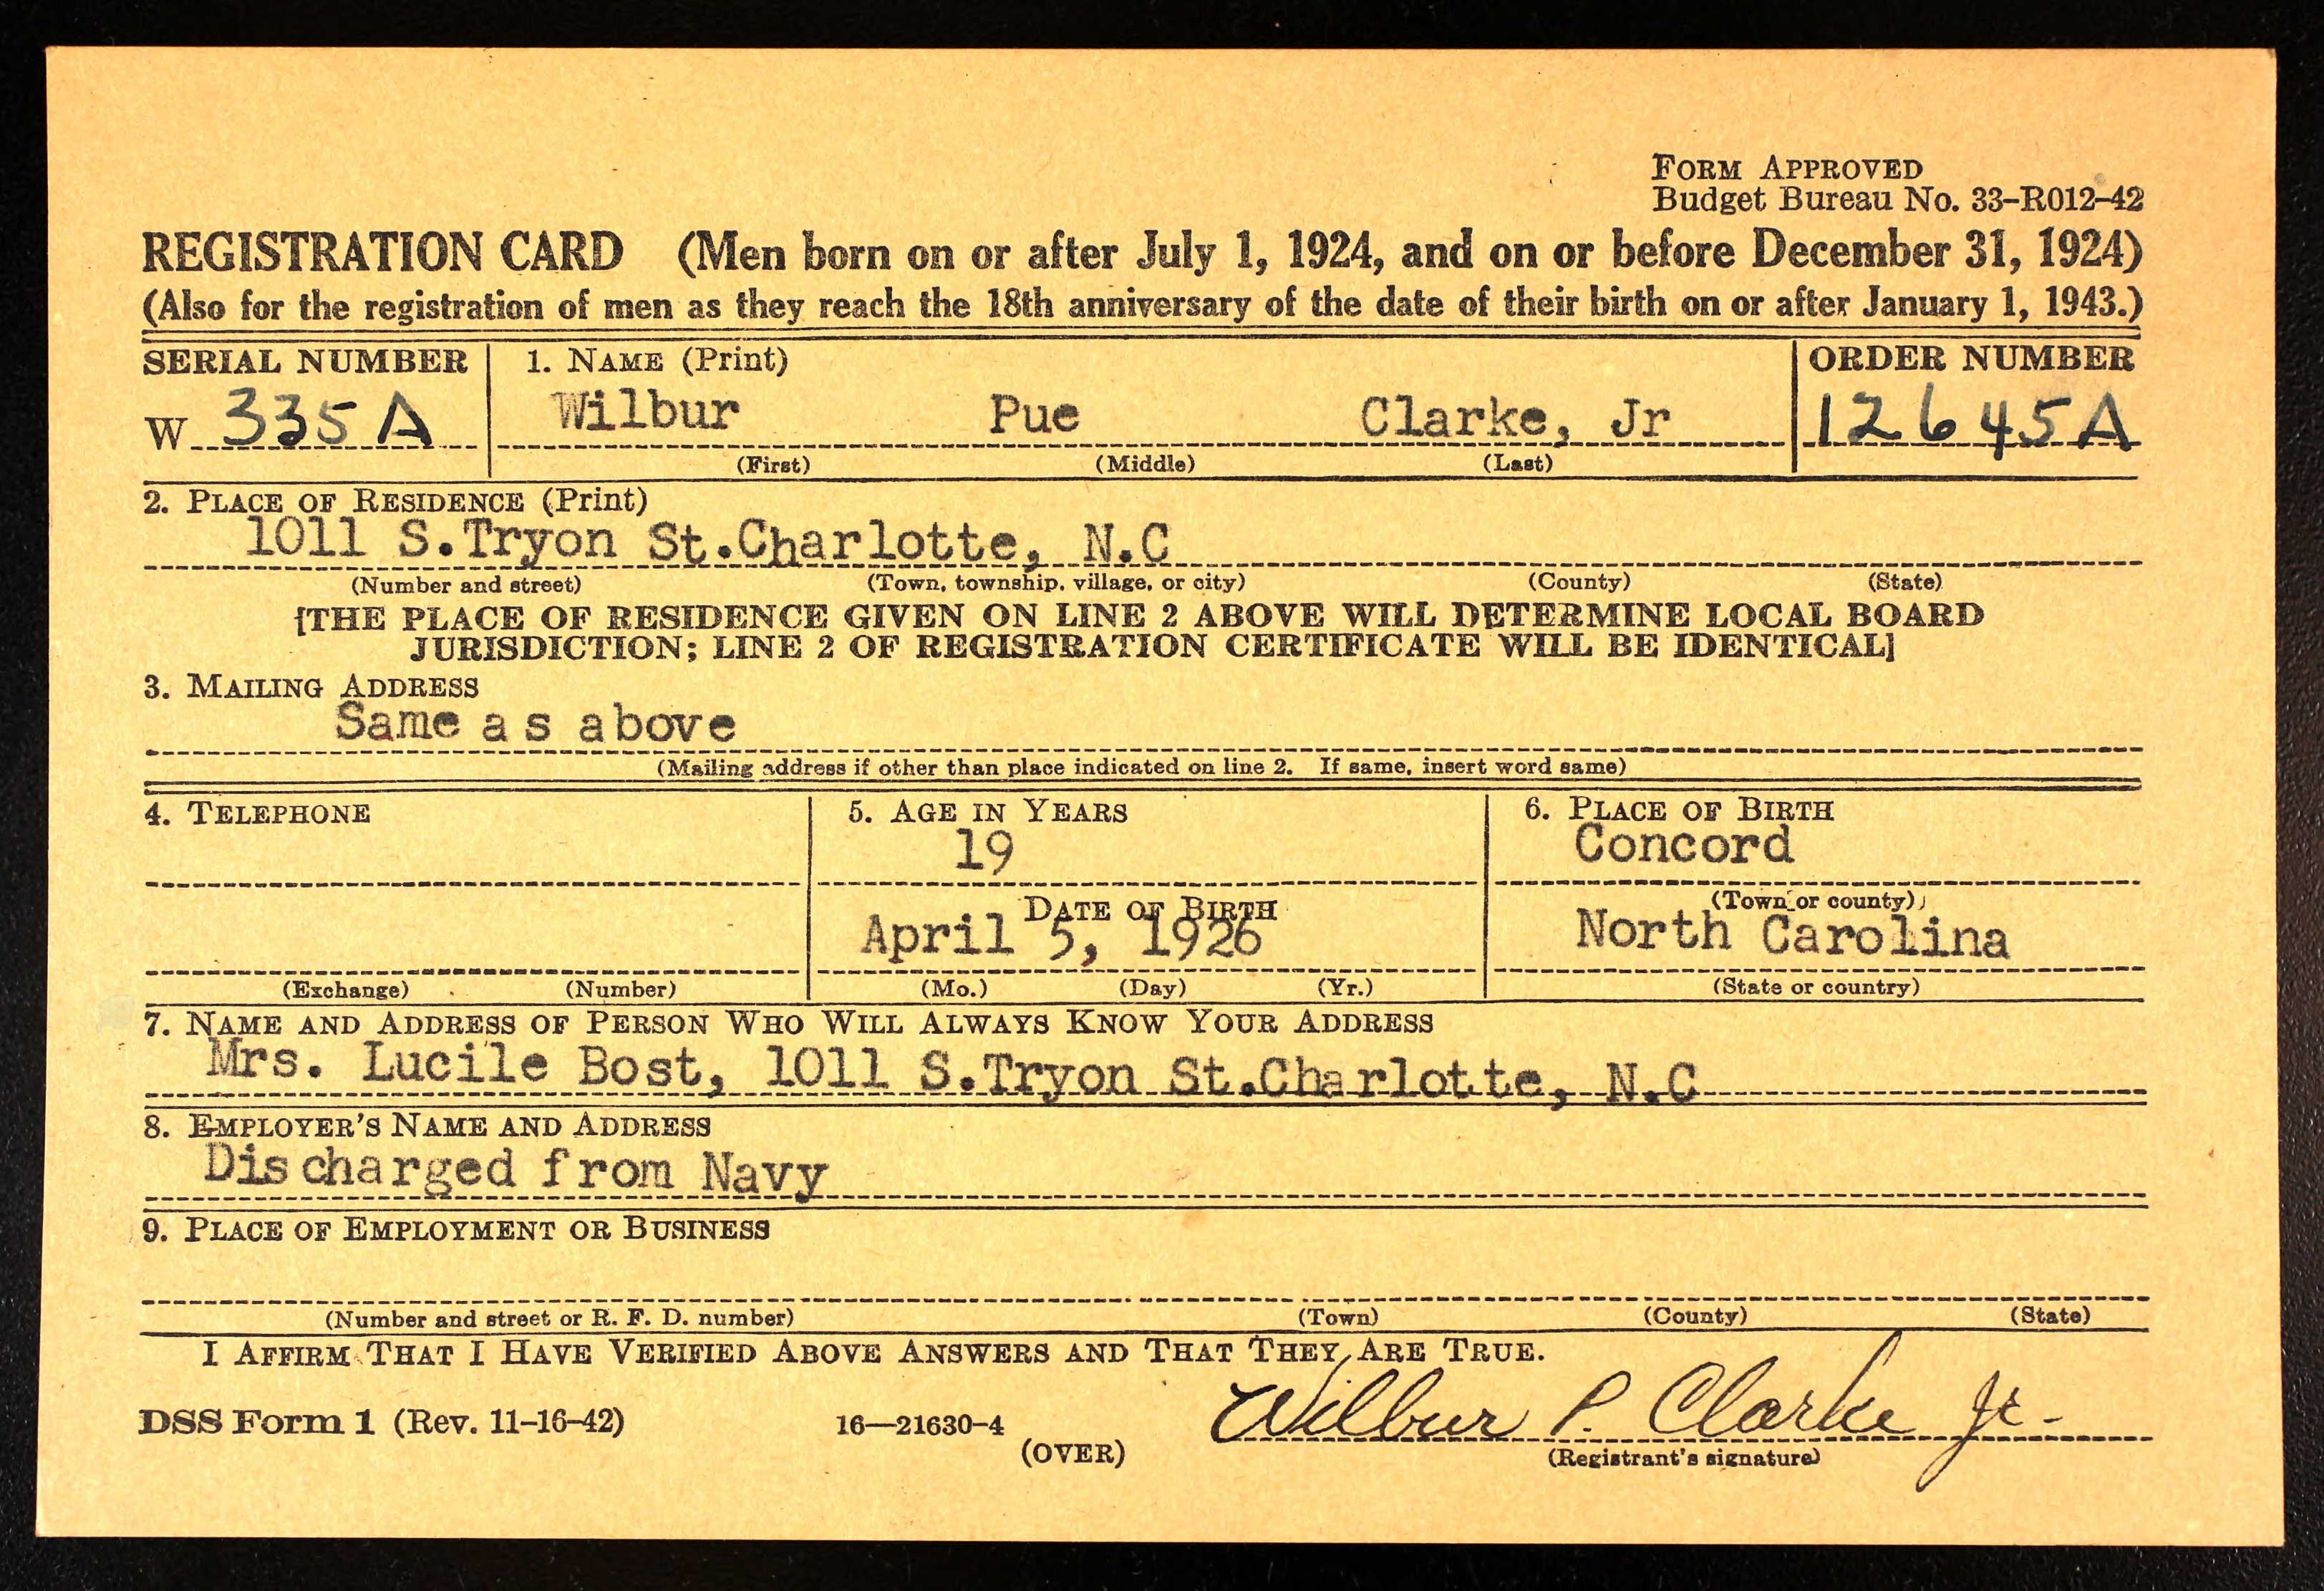 FORM APPROVED
Budget Bureau No. 33-R012-42
REGISTRATION CARD (Men born on or after July 1, 1924, and on or before December 31, 1924)
(Also for the registration of men as they reach the 18th anniversary of the date of their birth on or after January 1, 1943.)
SERIAL NUMBER 1. NAME (Print) ORDER NUMBER
W 335A Wilbur Pue Clarke, Jr 12645A
(First) (Middle) (Last)
2. PLACE OF RESIDENCE (Print)
1011 S.Tryon St.Charlotte, N.C
(Number and street) (Town, township, village, or city) (County) (State)
[THE PLACE OF RESIDENCE GIVEN ON LINE 2 ABOVE WILL DETERMINE LOCAL BOARD
JURISDICTION; LINE 2 OF REGISTRATION CERTIFICATE WILL BE IDENTICAL]
3. MAILING ADDRESS
Same as above
(Mailing address if other than place indicated on line 2. If same, insert word same)
4. TELEPHONE 5. AGE IN YEARS 6. PLACE OF BIRTH
19 Concord
DATE OF BIRTH (Town or county)
April 5, 1926 North Carolina
(Exchange) (Number) (Mo.) (Day) (Yr.) (State or country)
7. NAME AND ADDRESS OF PERSON WHO WILL ALWAYS KNOW YOUR ADDRESS
Mrs. Lucile Bost, 1011 S.Tryon St.Charlotte, N.C
8. EMPLOYER'S NAME AND ADDRESS
Discharged from Navy
9. PLACE OF EMPLOYMENT OR BUSINESS
(Number and street or R. F. D. number) (Town) (County) (State)
I AFFIRM THAT I HAVE VERIFIED ABOVE ANSWERS AND THAT THEY ARE TRUE.
DSS Form 1 (Rev. 11-16-42) 16—21630-4 Wilbur P. Clarke Jr.
(OVER) (Registrant's signature)